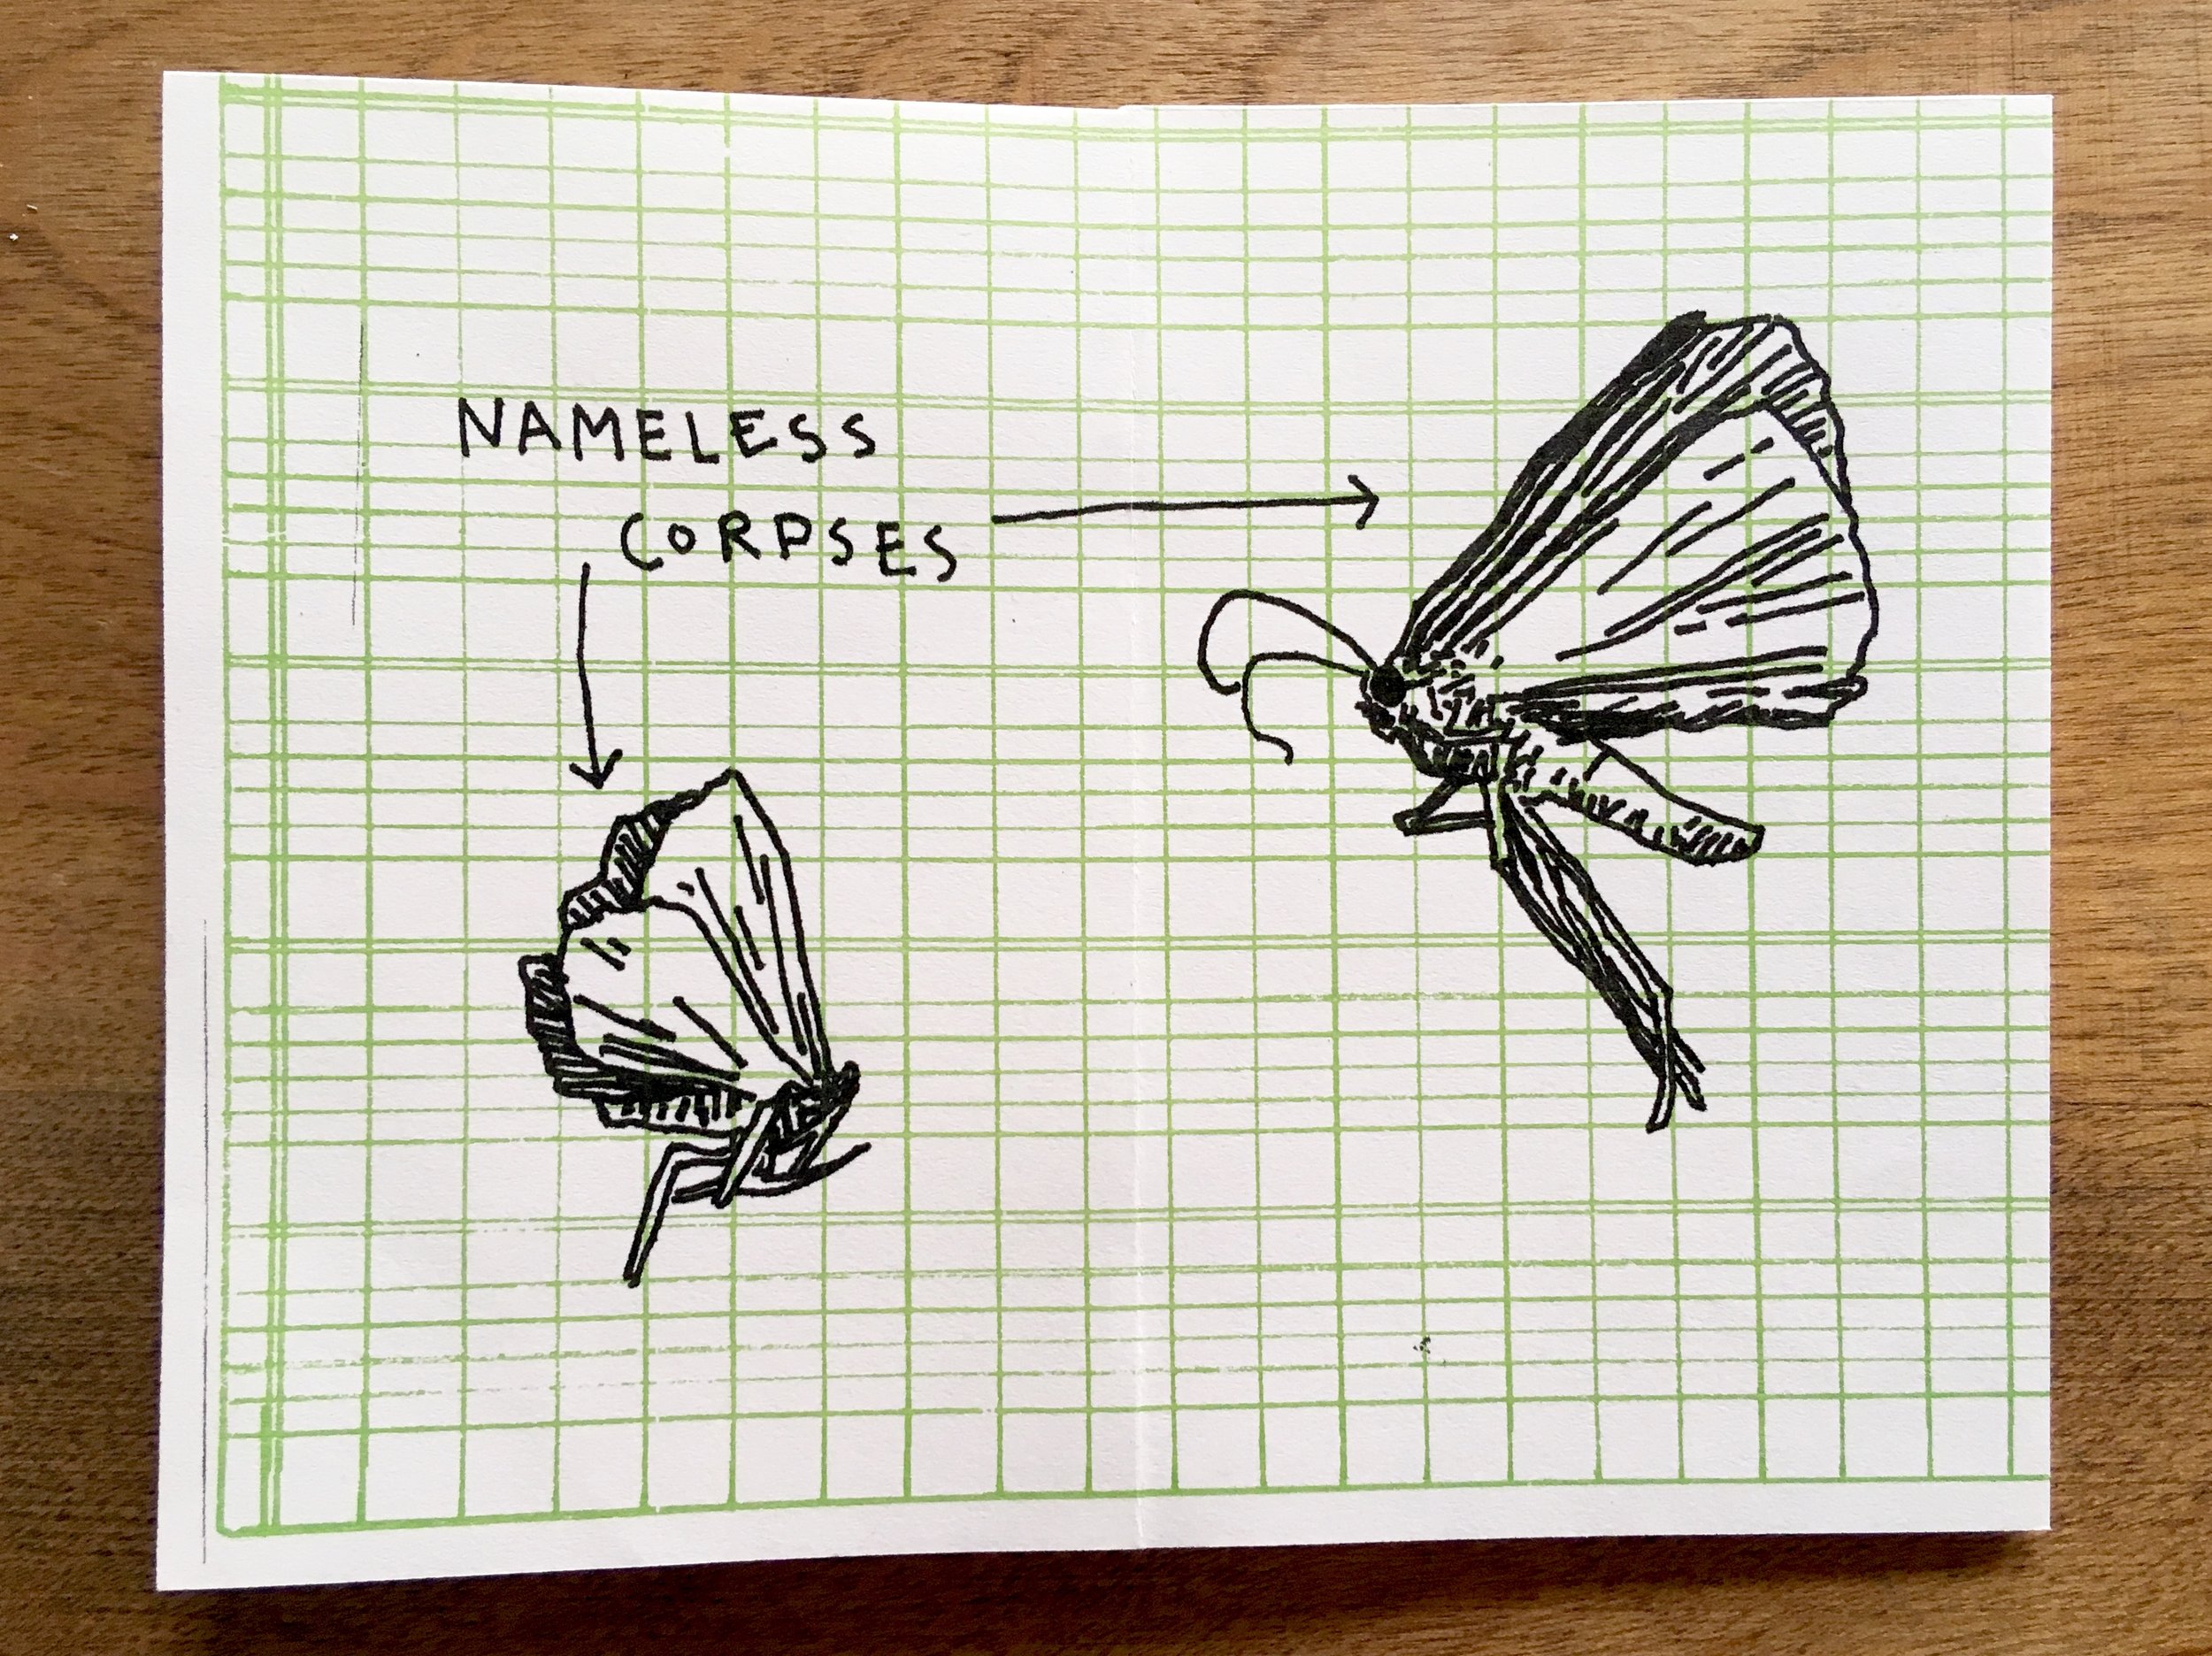 NAMELESS
CORPSES